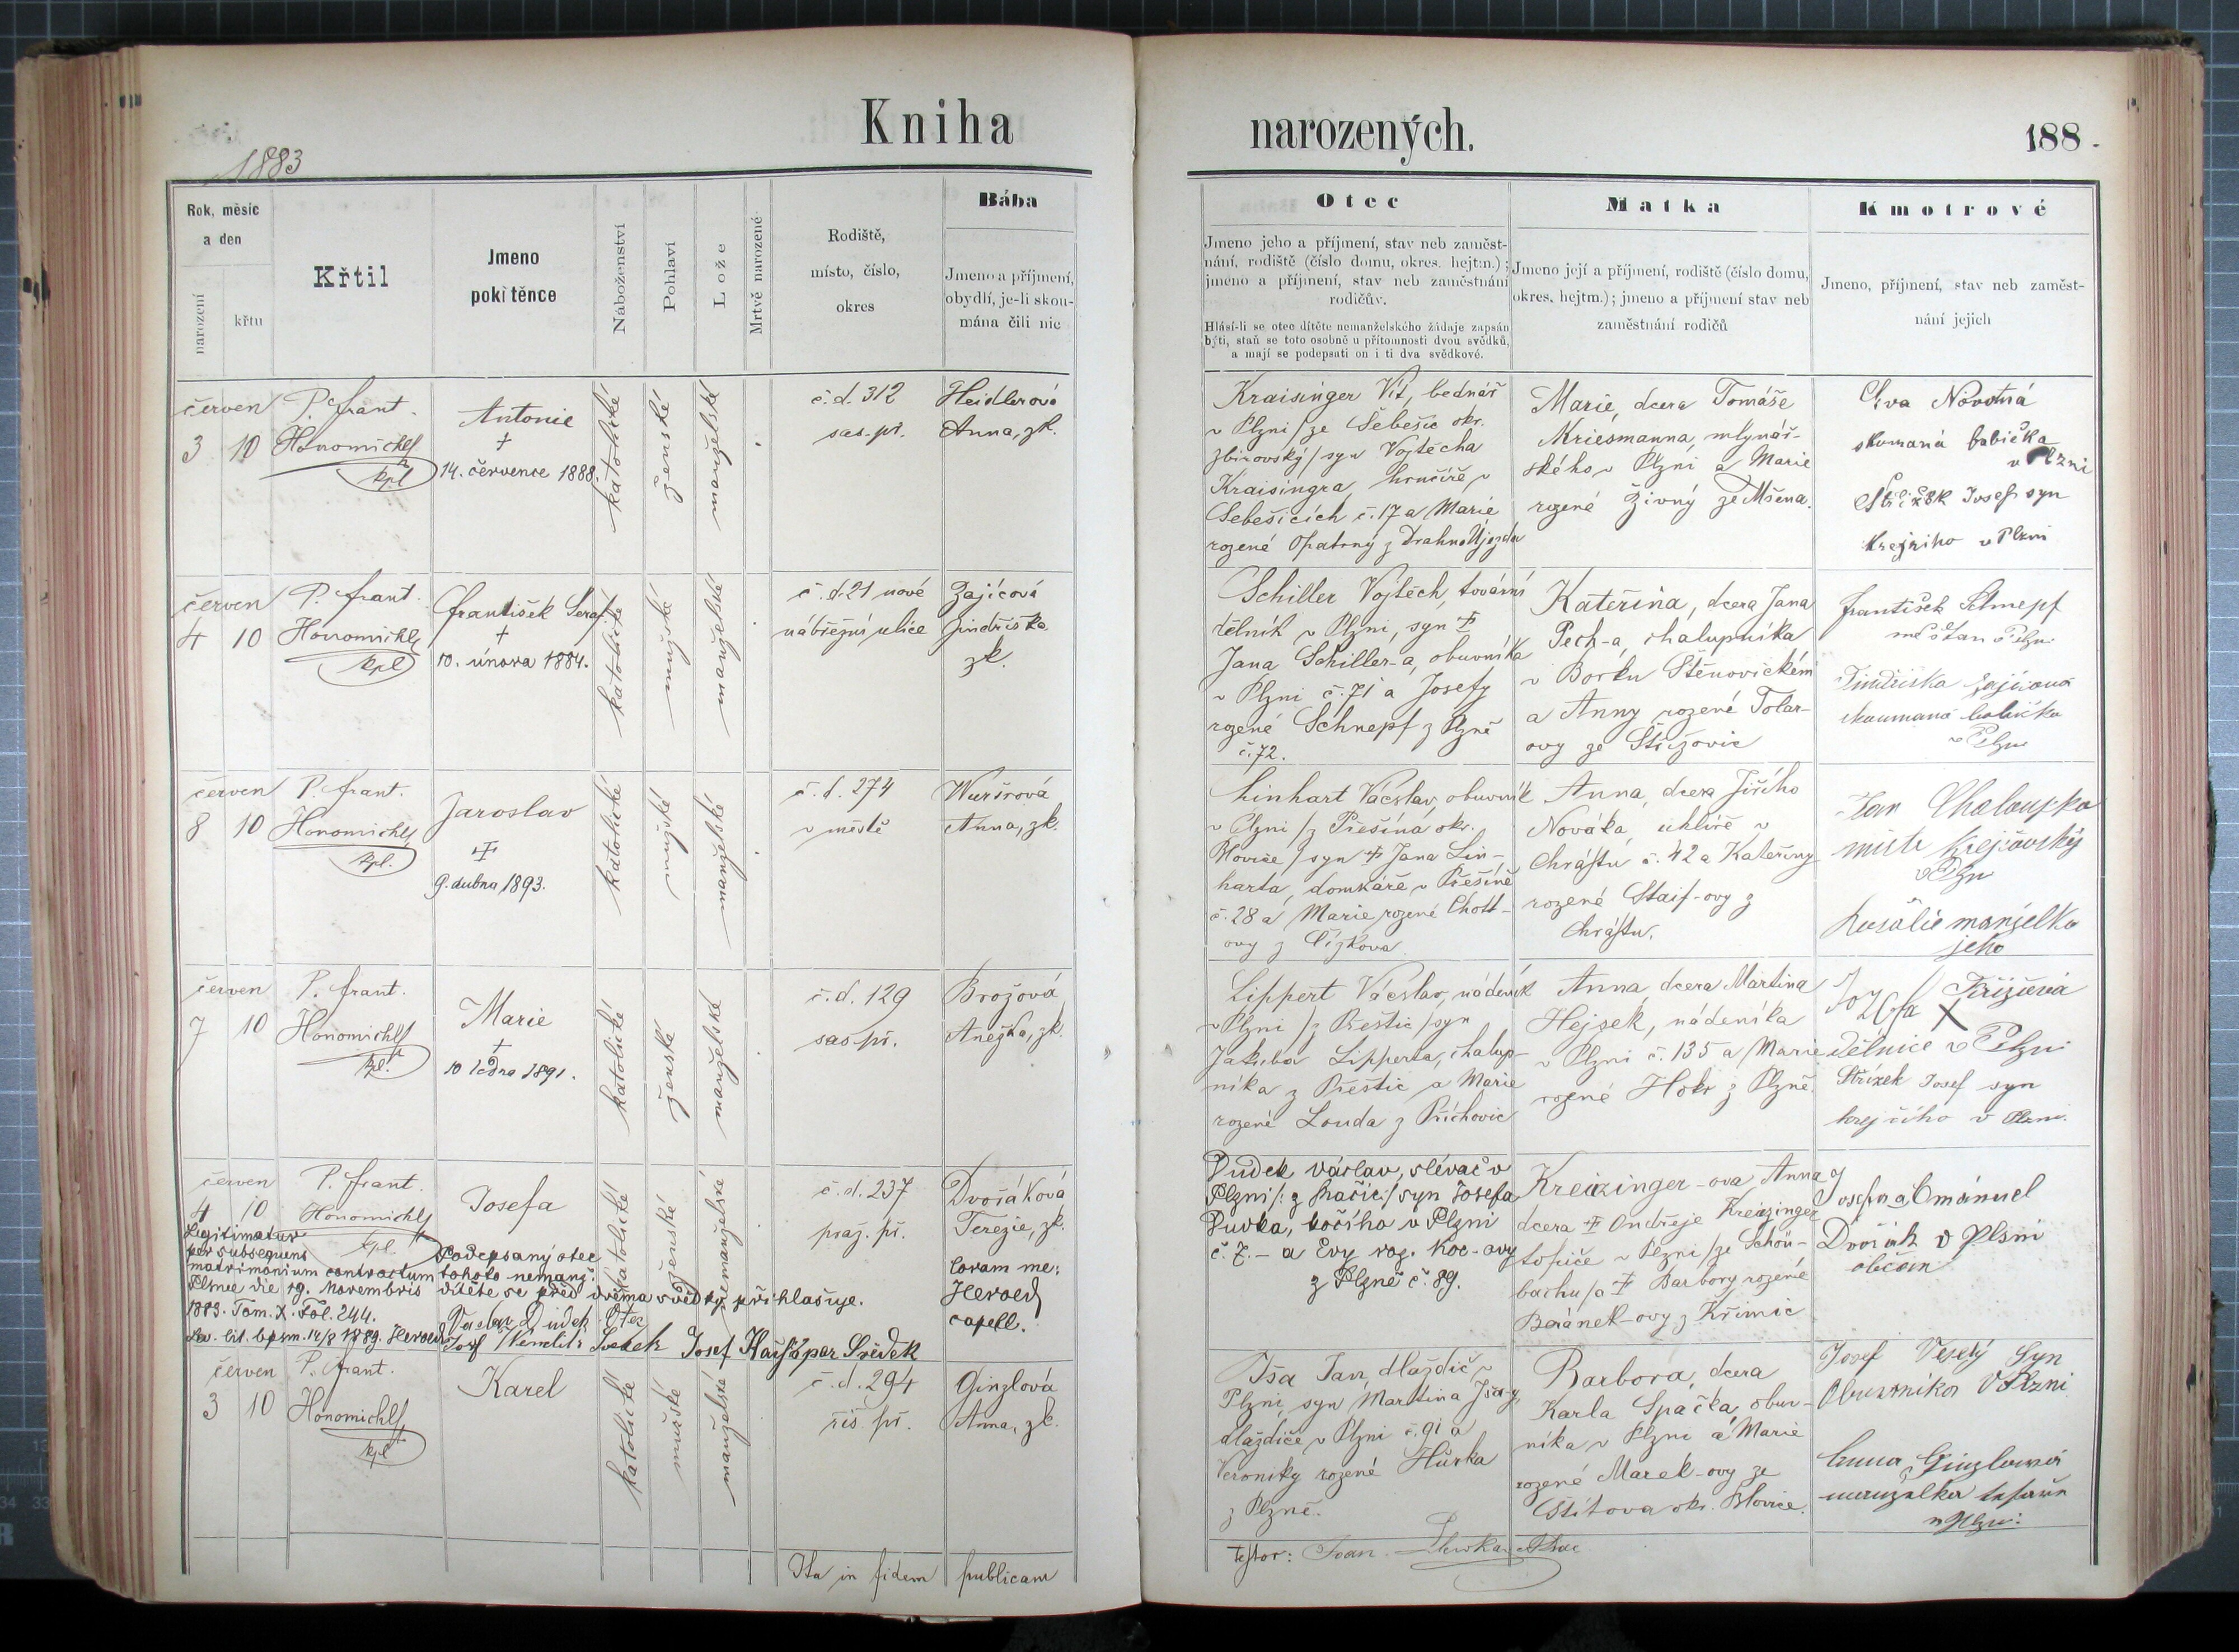 Kniha narozených.
188.
1883
Rok, měsíc
a den
narození
křtu
Křtil
Jmeno
pokřtěnce
Náboženství
Pohlaví
Lože
Mrtvě narozené
Rodiště,
místo, číslo,
okres
Bába
Jmeno a příjmení,
obydlí, je-li skou-
mána čili nic
Otec
Jmeno jeho a příjmení, stav neb zaměst-
nání, rodiště (číslo domu, okres. hejtm.);
jmeno a příjmení, stav neb zaměstnání
rodičův.
Hlásí-li se otec dítěte nemanželského žádaje zapsán
býti, staň se toto osobně u přítomnosti dvou svědků,
a mají se podepsati on i ti dva svědkové.
Matka
Jmeno její a příjmení, rodiště (číslo domu,
okres. hejtm.); jmeno a příjmení stav neb
zaměstnání rodičů
Kmotrové
Jmeno, příjmení, stav neb zaměst-
nání jejich
červen
3 10
P. frant.
Honomichl
kpl
Antonie
†
14. července 1888.
katolické
ženské
manželské
č. d. 312
sas. př.
Heidlerová
Anna, zk.
Kraisinger Vít, bednář
v Plzni /ze Šebešic okr.
zbirovský/ syn Vojtěcha
Kraisingra, hrnčíře v
Šebešicích č. 17 a Marie
rozené Opatrný z Drahno Újezda
Marie, dcera Tomáše
Kriesmanna, mlynář-
ského v Plzni a Marie
rozené Živný ze Mšena.
Eva Novotná
skumaná babička
v Plzni
Střížek Josef syn
krejřiho v Plzni
červen
4 10
P. frant.
Honomichl
kpl
František Seraf
†
10. února 1884.
katolické
mužské
manželské
č. d. 21 nové
nábřežní ulice
Zajícová
Jindřiška
zk.
Schiller Vojtěch, tovární
dělník v Plzni, syn †
Jana Schiller-a, obuvníka
v Plzni č. 71 a Josefy
rozené Schnepf z Plzně
č. 72.
Kateřina, dcera Jana
Pech-a, chalupníka
v Borku Štěnovickém
a Anny rozené Tolar-
ovy ze Střížovic
František Schnepf
měšťan v Plzni
Jindřiska Zajícová
skoumaná babička
v Plzni
červen
8 10
P. frant.
Honomichl
kpl.
Jaroslav
†
9. dubna 1893.
katolické
mužské
manželské
č. d. 274
v městě
Anna, zk.
Linhart Václav, obuvník
v Plzni /z Přešína okr.
Blovice/ syn † Jana Lin-
harta, domkáře v Přešíně
č. 28 a Marie rozené Chott-
ovy z Čížkova
Anna, dcera Jiřího
Nováka, uhlíře v
Chrástu č. 42 a Kateřiny
rozené Staif-ovy z
Chrástu.
Jan Chaloupka
mistr krejčovský
v Plzni
Rosálie manželka
jeho
červen
7 10
P. frant.
Honomichl
kpl.
Marie
†
10 ledna 1891.
katolické
ženské
manželské
č. d. 129
sas. př.
Brožová
Anežka, zk.
Lippert Václav, nádeník
v Plzni /z Přeštic/ syn
Jakuba Lipperta, chalup-
níka z Přeštic a Marie
rozené Louda z Příchovic
Anna dcera Martina
Hejsek, nádeníka
v Plzni č. 135 a Marie
rozené Hokr z Plzně.
Jozefa X Křížová
dělnice v Plzni
Střížek Josef syn
krejčího v Plzni.
červen
4 10
P. frant.
Honomichl
kpl.
Josefa
katolické
ženské
nemanželské
č. d. 237
praž. př.
Dvořáková
Terezie, zk.
Coram me:
Heroed
capell.
Legitimatur
per subsequens
matrimonium contractum
Plznae die 19. Novembris
1883. Tom. X. Fol. 244.
Podepsaný otec
tohoto nemanž.
dítěte se před dvěma svědky přihlašuje.
Václav Dudek Otec
Svědek Josef Svědek
Dudek Václav, slévač v
Plzni /: z / syn Josefa
Dudka, kočího v Plzni
č. 7. – a Evy roz. Koc-ovy
z Plzně č. 89.
Kreizinger-ova, Anna
dcera † Ondřeje Kreizinger
topiče v Plzni /ze Schön-
bachu/ a † Barbory rozené
Beránek-ovy z Křimic
Josefa a Emánuel
Dvořák v Plsni
občan
červen
3 10
P. frant.
Honomichl
kpl
Karel
katolické
mužské
manželské
č. d. 294
říš. př.
Ginzlová
Anna, zk.
Isa Jan, dlaždič v
Plzni, syn Martina Isa-y,
dlaždiče v Plzni č. 91 a
Veroniky rozené Hůrka
z Plzně.
Barbora, dcera
Karla Špačka, obuv-
níka v Plzni a Marie
rozené Marek-ovy ze
Štítova okr. Blovice.
Josef Veselý Syn
Obuvníka V Plzni
Anna Ginzlová
manželka
v Plzni.
Ita in fidem publicam
testor: Joan.